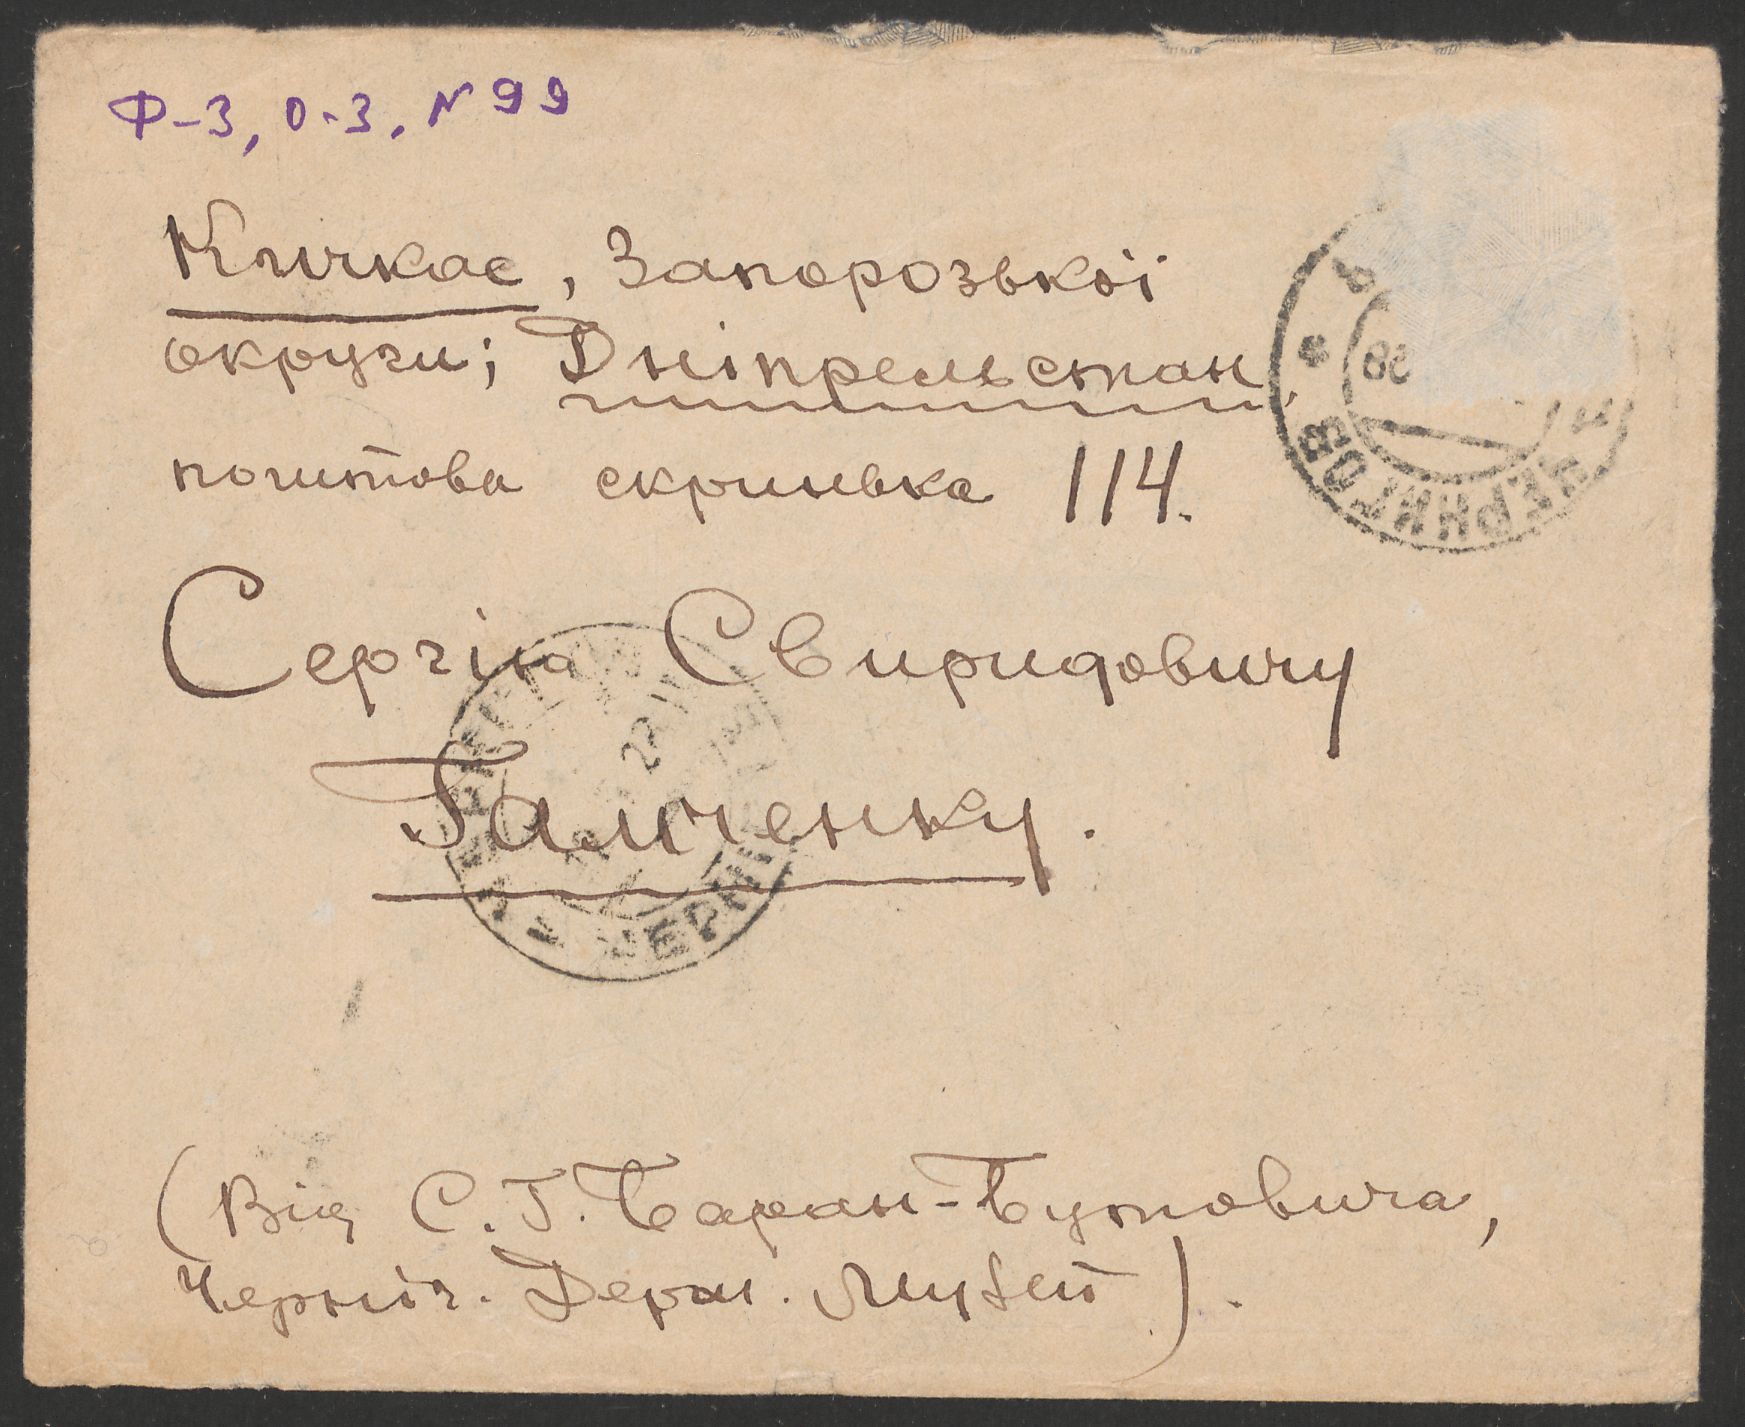 Ф-3, О-3, N 99
Кичкас, Запорозької
округи; Дніпрельстан,
поштова скринька 114.
Сергію Свиридовичу
Гамченку.
(Від С. Г. Баран-Бутовича,
Черніг. Держ. Музей).
28
ЧЕРНИГОВ
22
ЧЕРНІ